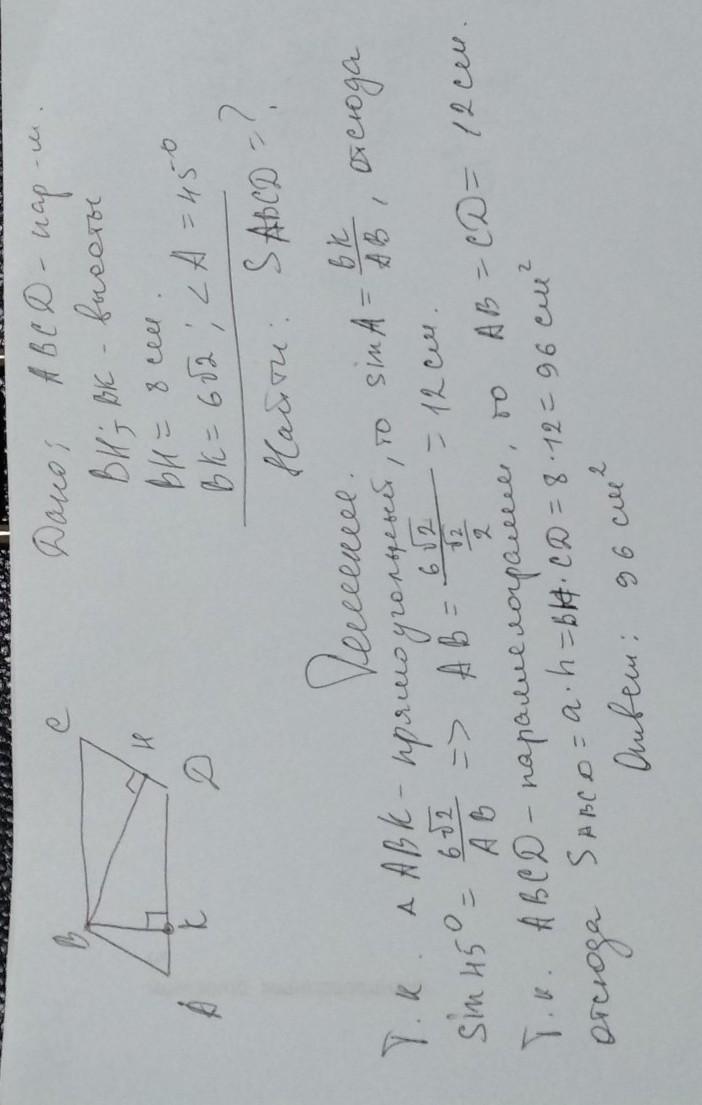 Дано: ABCD - пар-м.
BH; BK - высоты
BH = 8 см.
BK = 6√2; ∠A = 45°
Найти: SABCD = ?
B
C
H
A
K
D
Решение.
Т.к. △ABK - прямоугольный, то sin A = BK/AB, отсюда
Sin 45° = 6√2/AB => AB = 6√2/(√2/2) = 12 см.
Т.к. ABCD - параллелограмм, то AB = CD = 12 см.
отсюда SABCD = a · h = BH · CD = 8 · 12 = 96 см²
Ответ: 96 см²